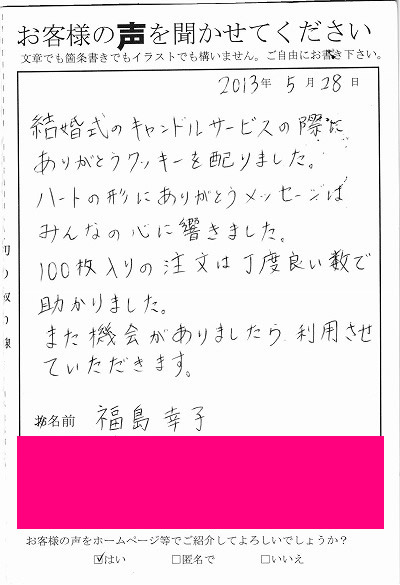 お客様の声を聞かせてください
文章でも箇条書きでもイラストでも構いません。ご自由にお書き下さい。
2013年 5月 28日
結婚式のキャンドルサービスの際に
ありがとうクッキーを配りました。
ハートの形にありがとうメッセージは
みんなの心に響きました。
100枚入りの注文は丁度良い数で
助かりました。
また機会がありましたら、利用させ
ていただきます。
お名前 福島 幸子
お客様の声をホームページ等でご紹介してよろしいでしょうか?
☑はい □匿名で □いいえ